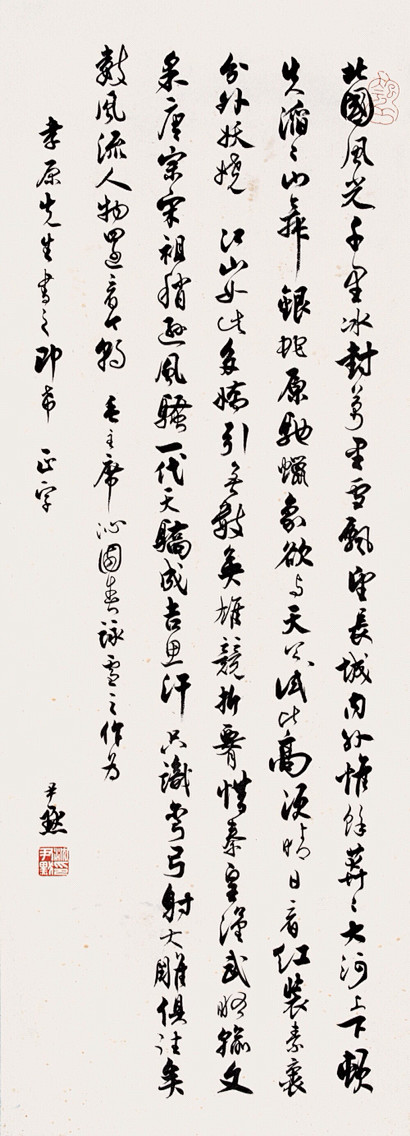 北國風光千里冰封萬里雪飄望長城內外惟餘莽〻大河上下頓
失滔〻山舞銀蛇原馳蠟象欲与天公試比高須晴日看紅裝素裹
分外妖嬈 江山如此多嬌引無數英雄競折腰惜秦皇漢武略輸文
采唐宗宋祖稍遜風騷一代天驕成吉思汗只識彎弓射大雕俱往矣
數風流人物還看今朝 毛主席沁園春詠雪之作為
孝原先生書之即希 正字
尹默